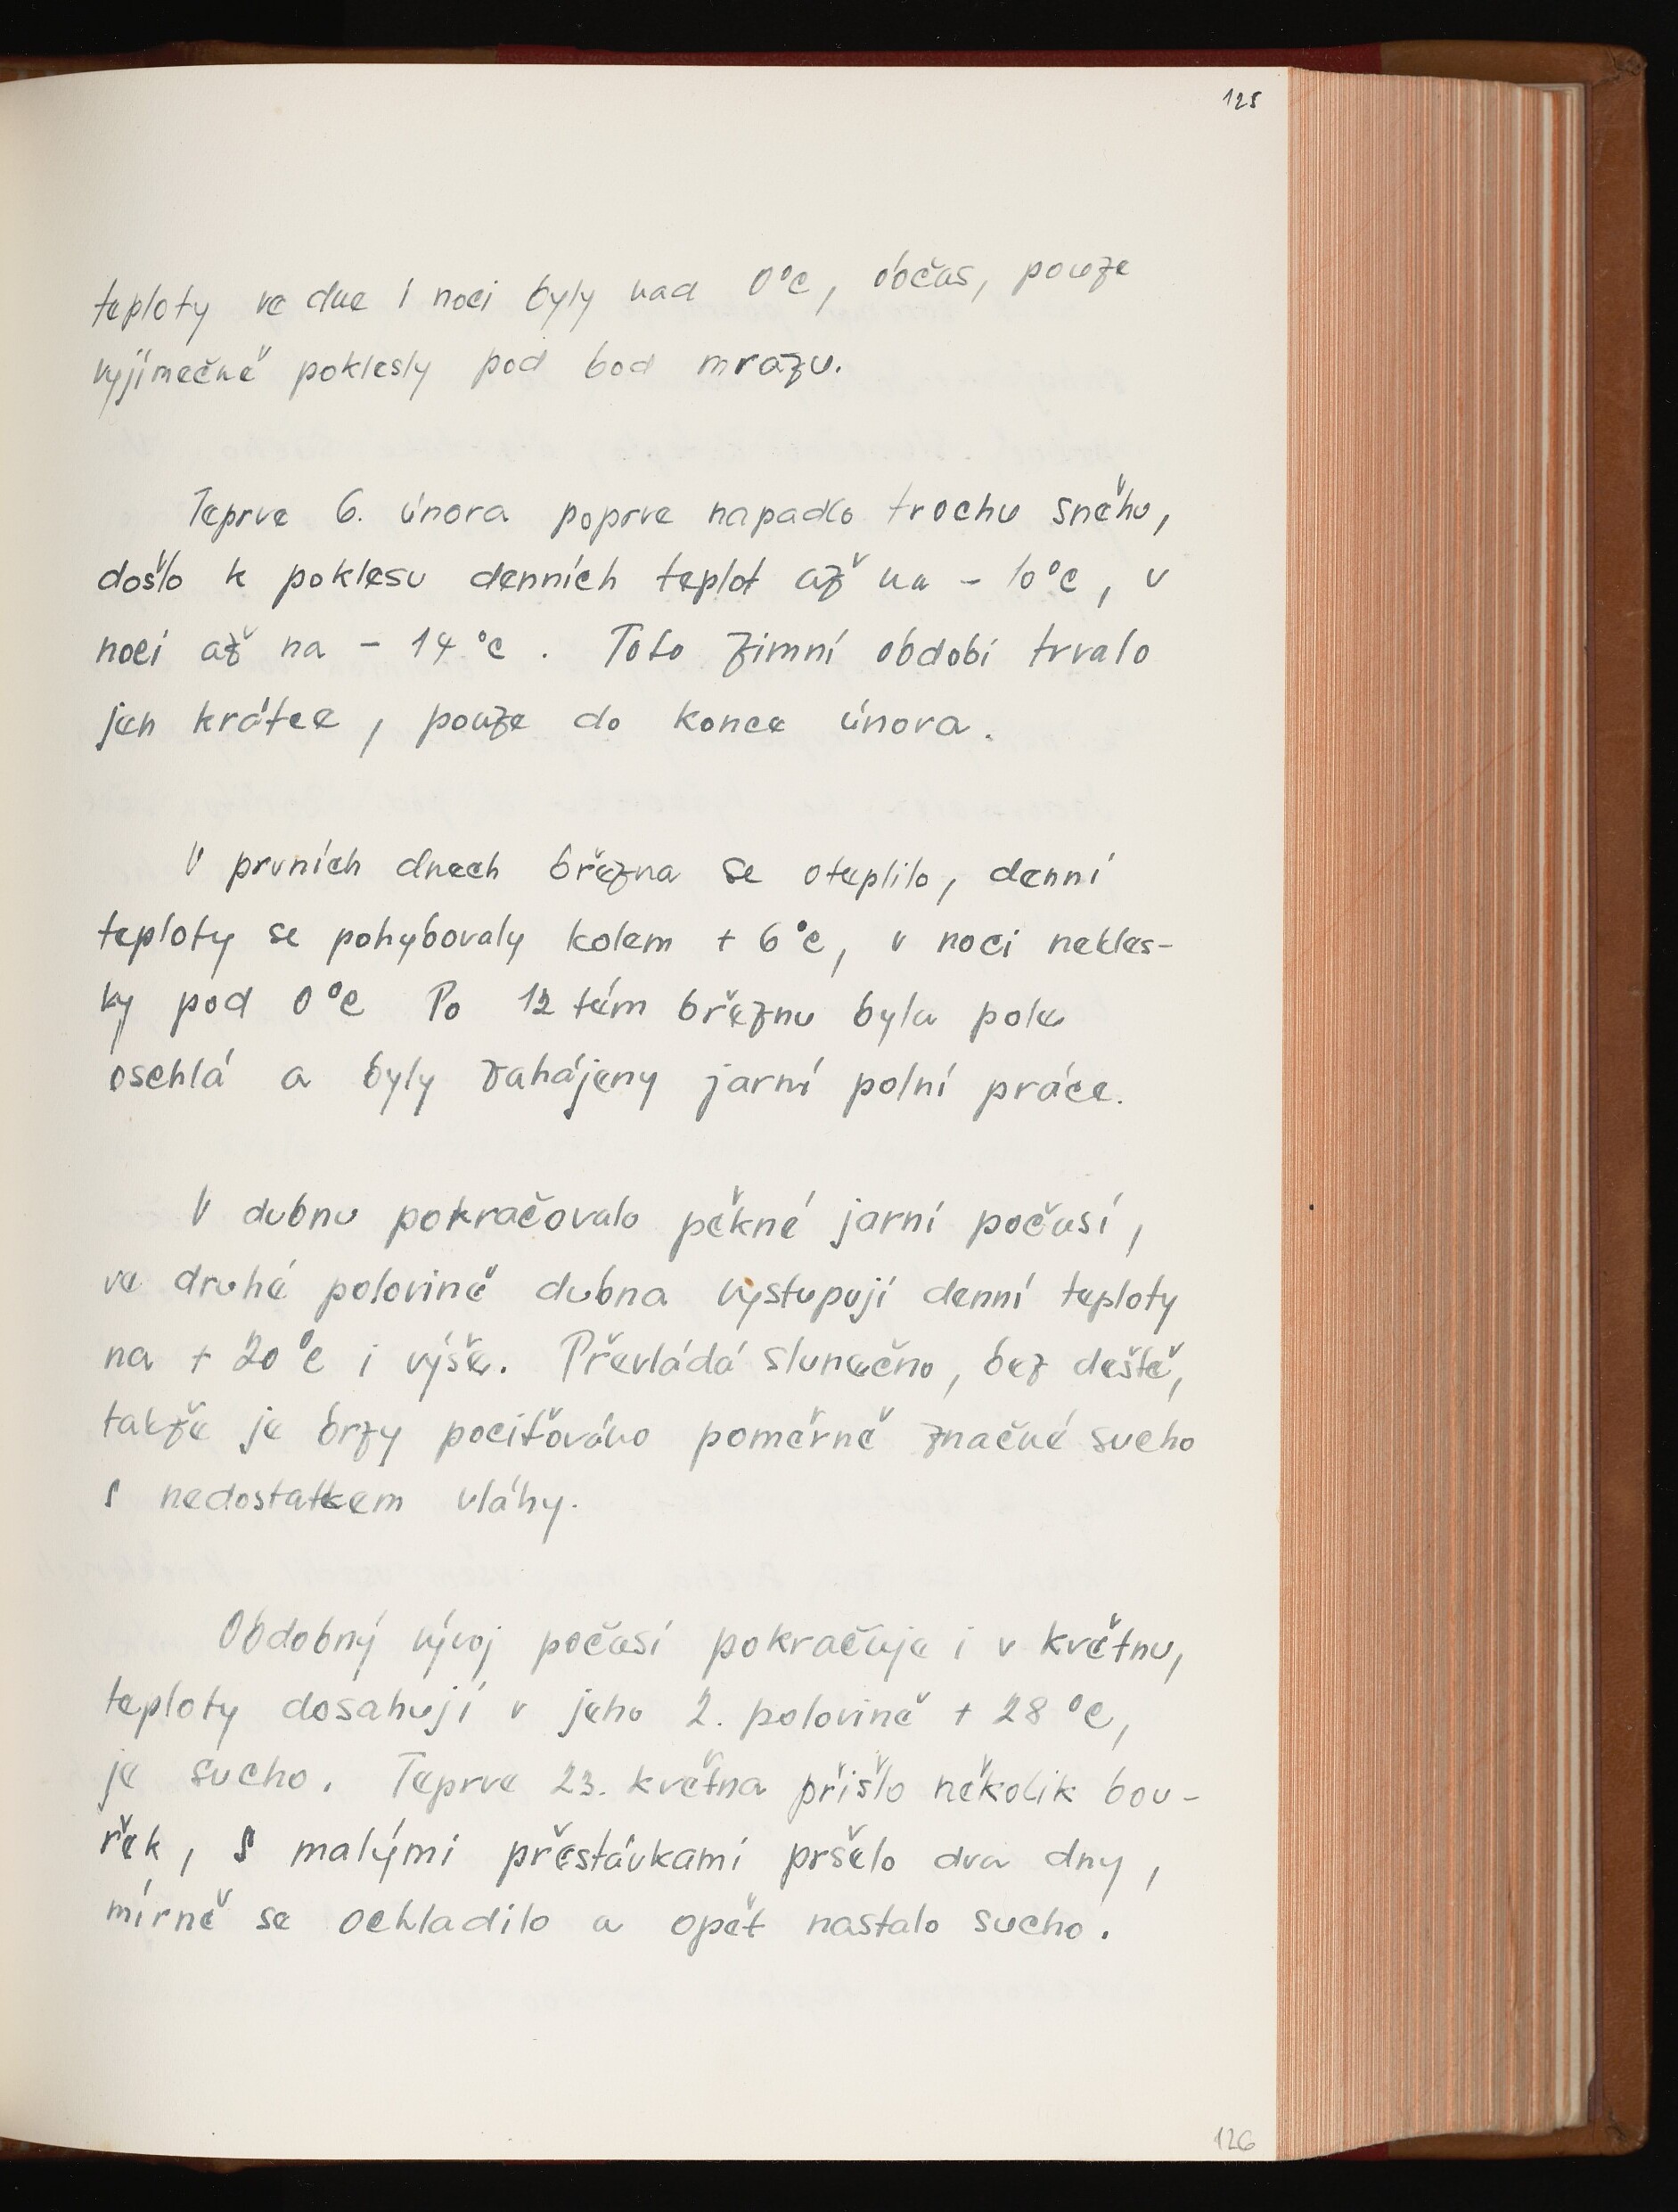 125
teploty ve dne i noci byly nad 0°C, občas, pouze
vyjímečně poklesly pod bod mrazu.
Teprve 6. února poprve napadlo trochu sněhu,
došlo k poklesu denních teplot až na - 10°C, v
noci až na - 14 °C. Toto zimní období trvalo
jen krátce, pouze do konce února.
V prvních dnech března se oteplilo, denní
teploty se pohybovaly kolem + 6°C, v noci nekles-
ly pod 0°C Po 12 tém březnu byla pole
oschlá a byly zahájeny jarní polní práce.
V dubnu pokračovalo pěkné jarní počasí,
ve druhé polovině dubna vystupují denní teploty
na + 20°C i výše. Převládá slunečno, bez deště,
takže je brzy pociťováno poměrně značné sucho
s nedostatkem vláhy.
Obdobný vývoj počasí pokračuje i v květnu,
teploty dosahují v jeho 2. polovině + 28 °C,
je sucho. Teprve 23. května přišlo několik bou-
řek, s malými přestávkami pršelo dva dny,
mírně se ochladilo a opět nastalo sucho.
126